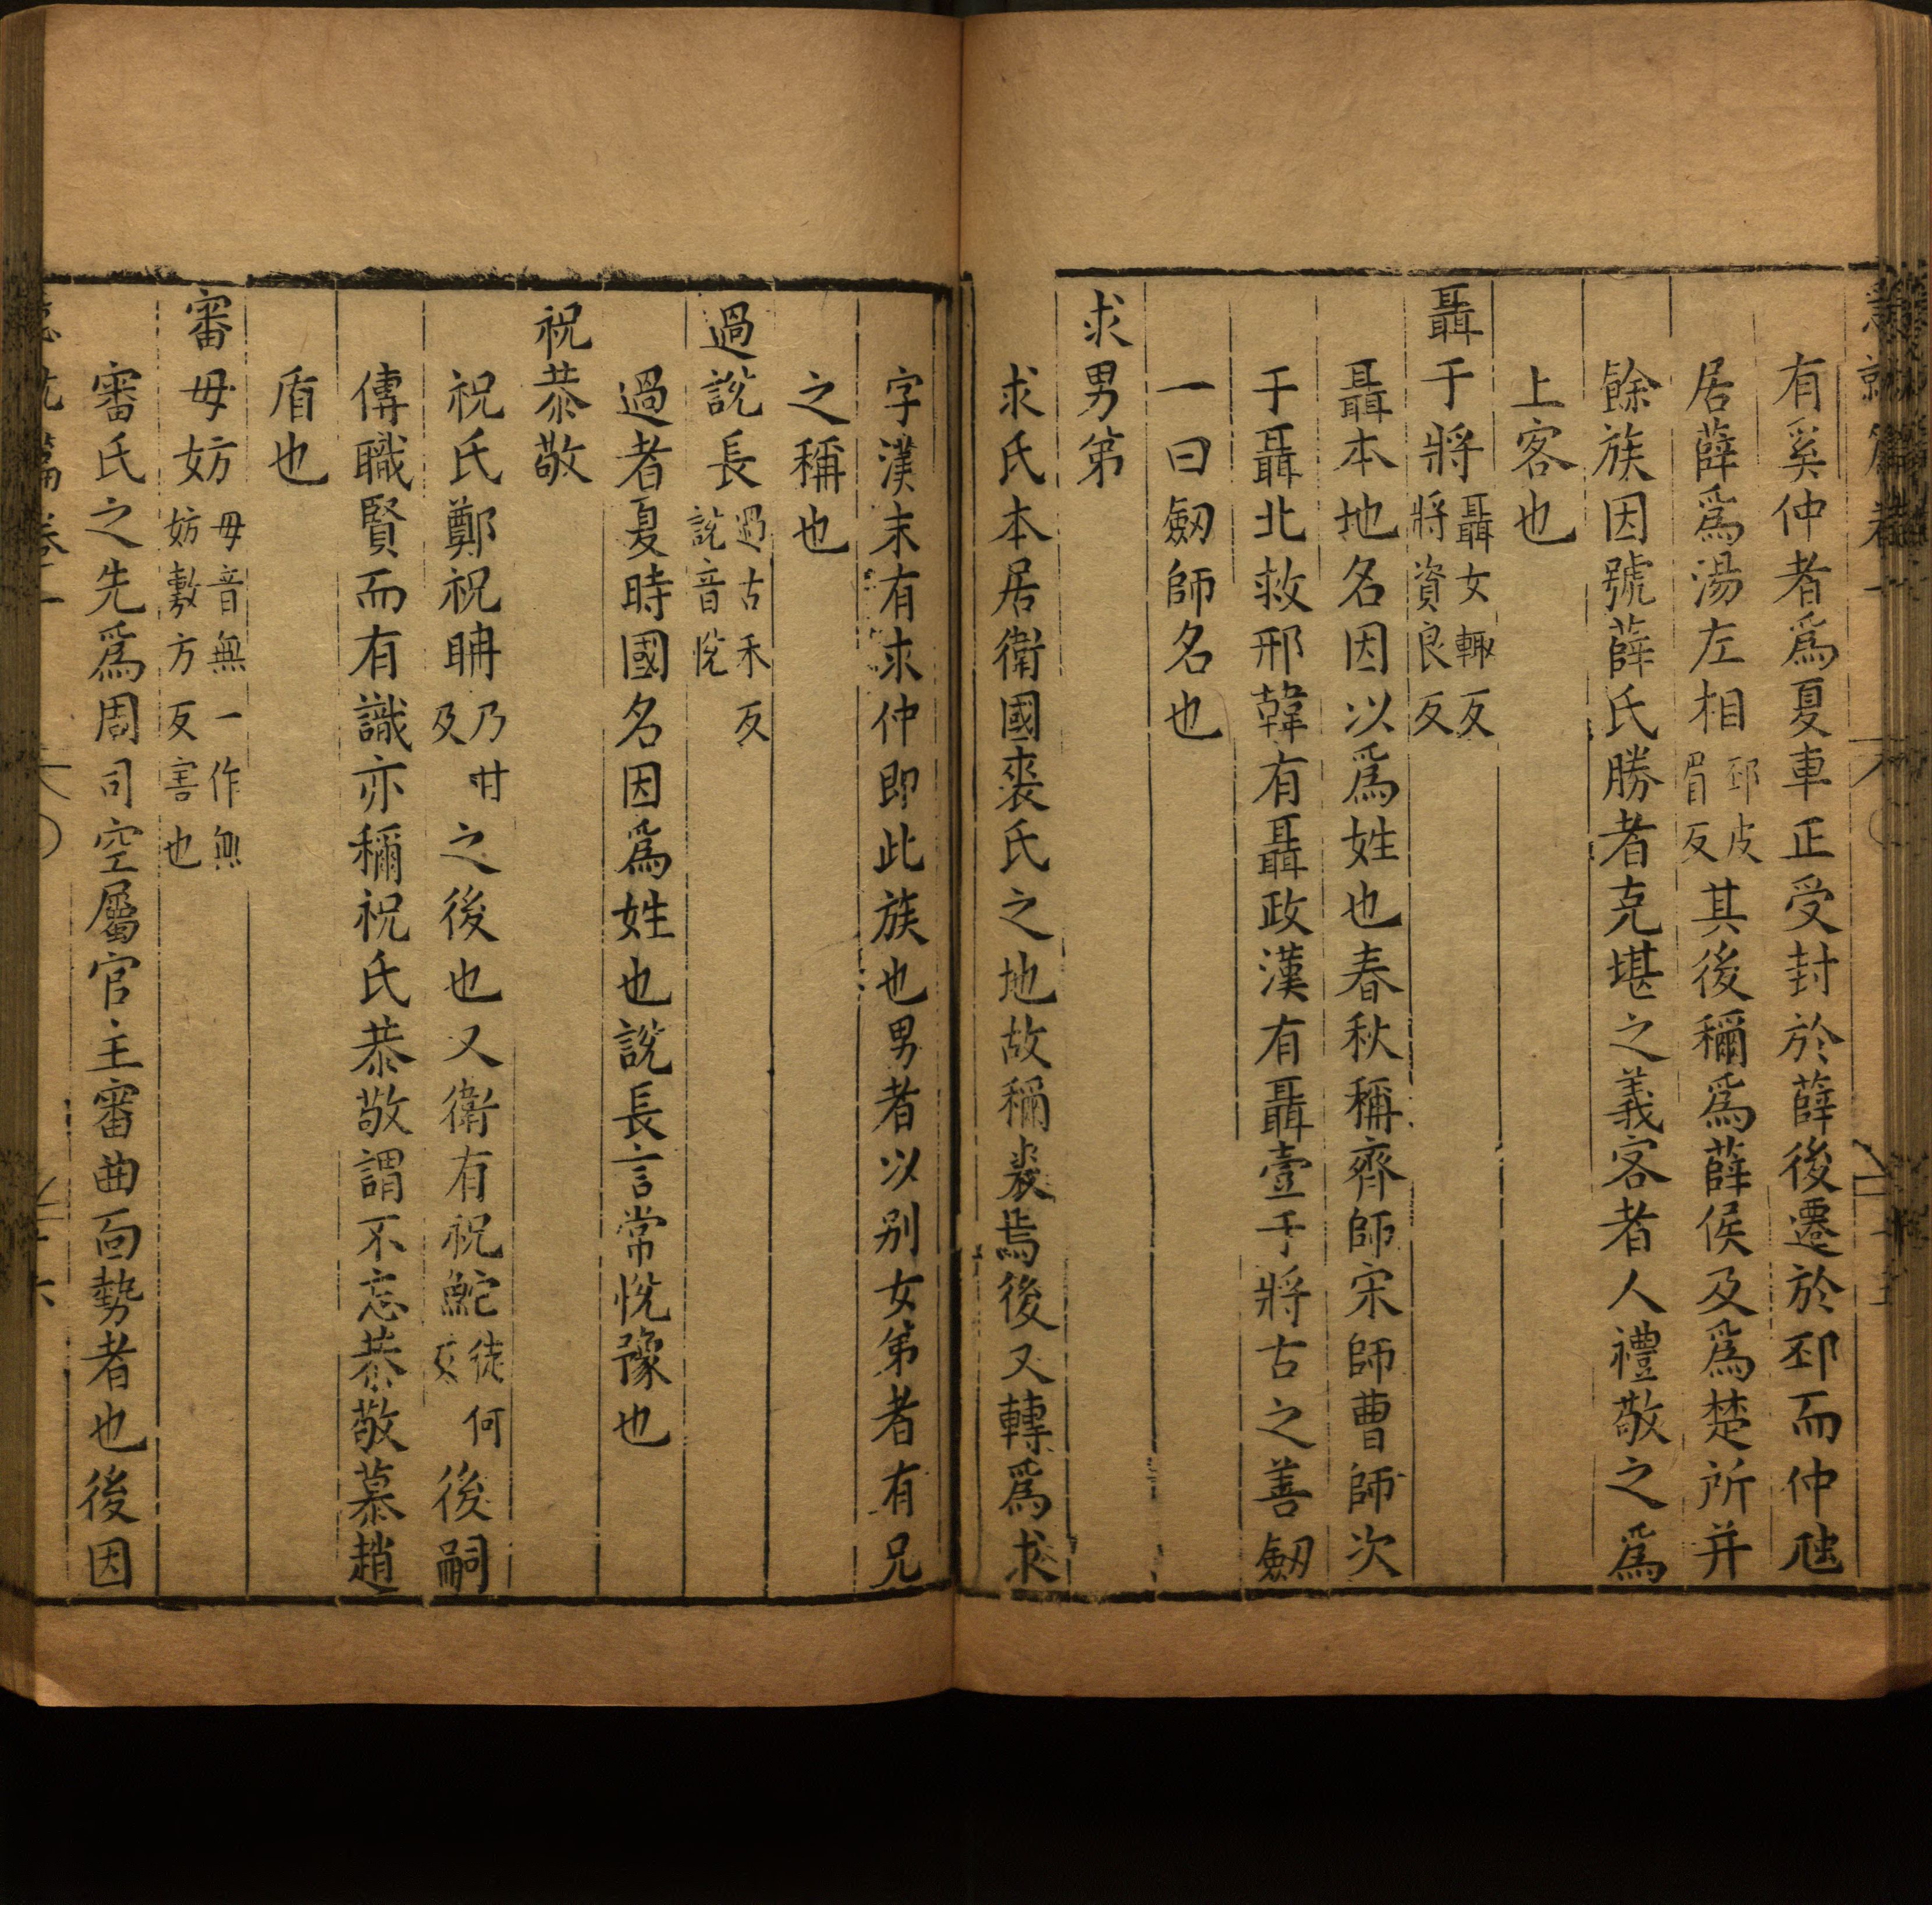 有奚仲者爲夏車正受封於薛後遷於邳而仲虺
居薛爲湯左相邳皮眉反其後稱爲薛侯及爲楚所并
餘族因號薛氏勝者克堪之義客者人禮敬之爲
上客也
聶干將聶女輙反將資良反
聶本地名因以爲姓也春秋稱齊師宋師曹師次
于聶北救邢韓有聶政漢有聶壹干將古之善劒
一曰劒師名也
求男弟
求氏本居衛國裘氏之地故稱裘焉後又轉爲求
字漢末有求仲即此族也男者以别女弟者有兄
之稱也
過說長過古禾反說音悅
過者夏時國名因爲姓也說長言常悅豫也
祝恭敬
祝氏鄭祝聃乃甘反之後也又衛有祝鮀徒何反後嗣
傳職賢而有識亦稱祝氏恭敬謂不忘恭敬慕趙
盾也
審毋妨毋音無一作無妨敷方反害也
審氏之先爲周司空屬官主審曲面勢者也後因